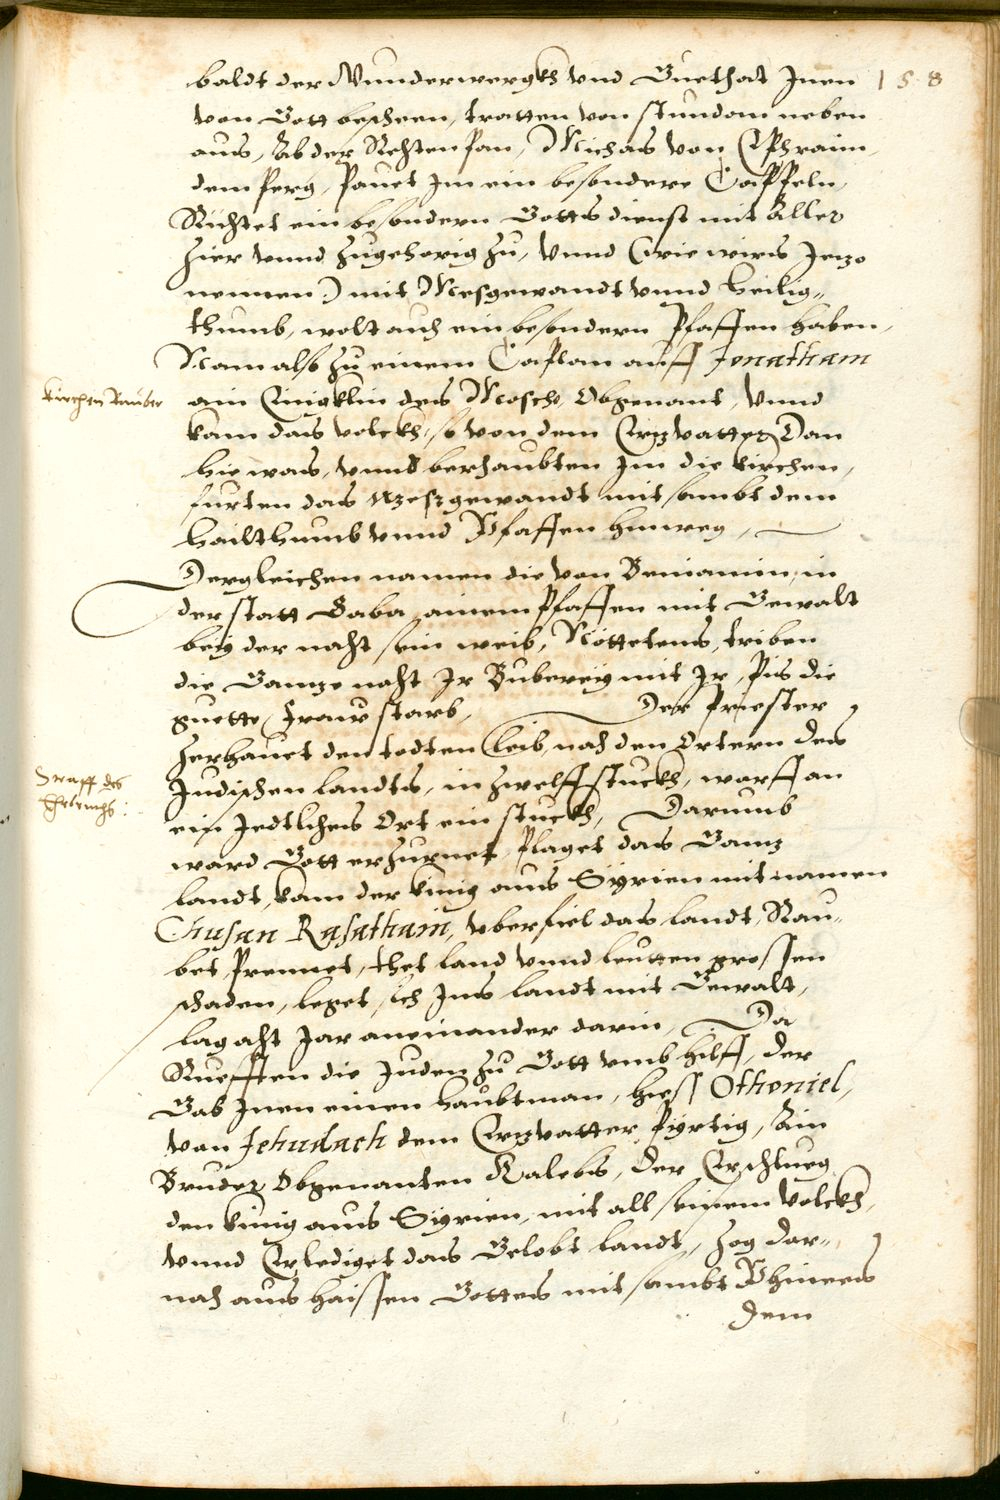 158
baldt der Wunderwergkh vnd Guethat Jnen
von Gott beschehen, tratten von stundan neben
aus, Ab der Rechten pan, Michas von Ephraim
dem perg, pauet Jm ein besondere Cappeln,
Richtet ein besondern Gottsdienst mit Aller
Zier vnnd zugehorig zu, vnnd (wie wirs Jezo
nennen) mit Mesgewandt vnnd heilig„
thumb, wolt auch ein besondern Pfaffen haben,
Nam also zu einem Caplan auff Jonatham
Kirchen Rauber
ain Enigklin des Mosche, Obgenant, vnnd
kam das volckh, so von dem Erzvatter Dan
hie was, vnnd beraubten Jm die kirchen,
furten das Meszgewandt mit sambt dem
hailthumb vnnd Pfaffen hinweg,
Dergleichen namen die von Beniamin, in
der statt Gaba ainem Pfaffen mit Gewalt
bey der nacht sein weib, Nöttetens, triben
die Gannze nacht Jr Buberey mit Jr, Pis die
guette frauw starb, Der Priester
zerhauet den todten leib, nach den Ortern des
Straff des
Ehebruchs:
Judischen landts, in zwelff stuckh, warff an
ein Jedtliches Ort ein stuckh, Darumb
ward Gott erzurnet, plaget das Gannz
landt, kam der kinig aus Syrien mit namen
Chusan Rasathaim, vberfiel das landt, Rau„
bet, Prennet, thet land vnnd leutten grossen
schaden, leget sich Jns landt mit Gewalt,
lag acht Jar aneinander darin, Da
Ruefften die Juden zu Gott vmb hilff, der
Gab Jnen einen haubtman, hiess Othoniel,
von Jehudach dem Erzvatter pyrtig, Ain
Bruder Obgenanten Kalebs, der Erschlueg
den kinig aus Syrien, mit all seinem volckh,
vnnd Erlediget das Gelobt landt, zog dar„
nach aus haissen Gottes mit sambt Phinees
dem